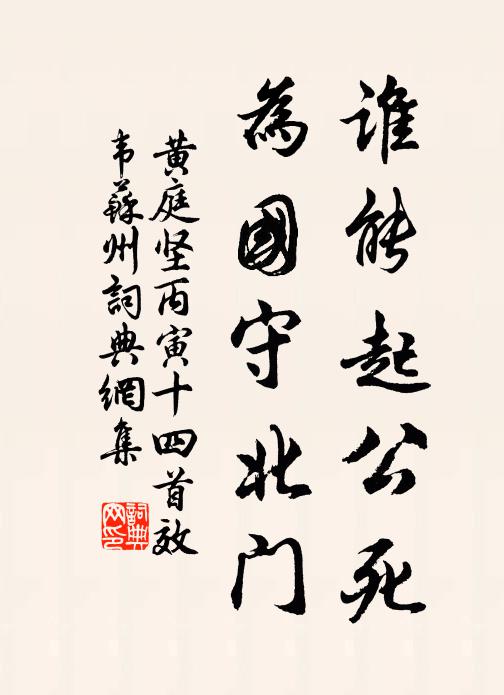 谁能起公死
為國守北门
黄庭坚丙寅十四首效
韦蘇州詞典網集
詞典
网印